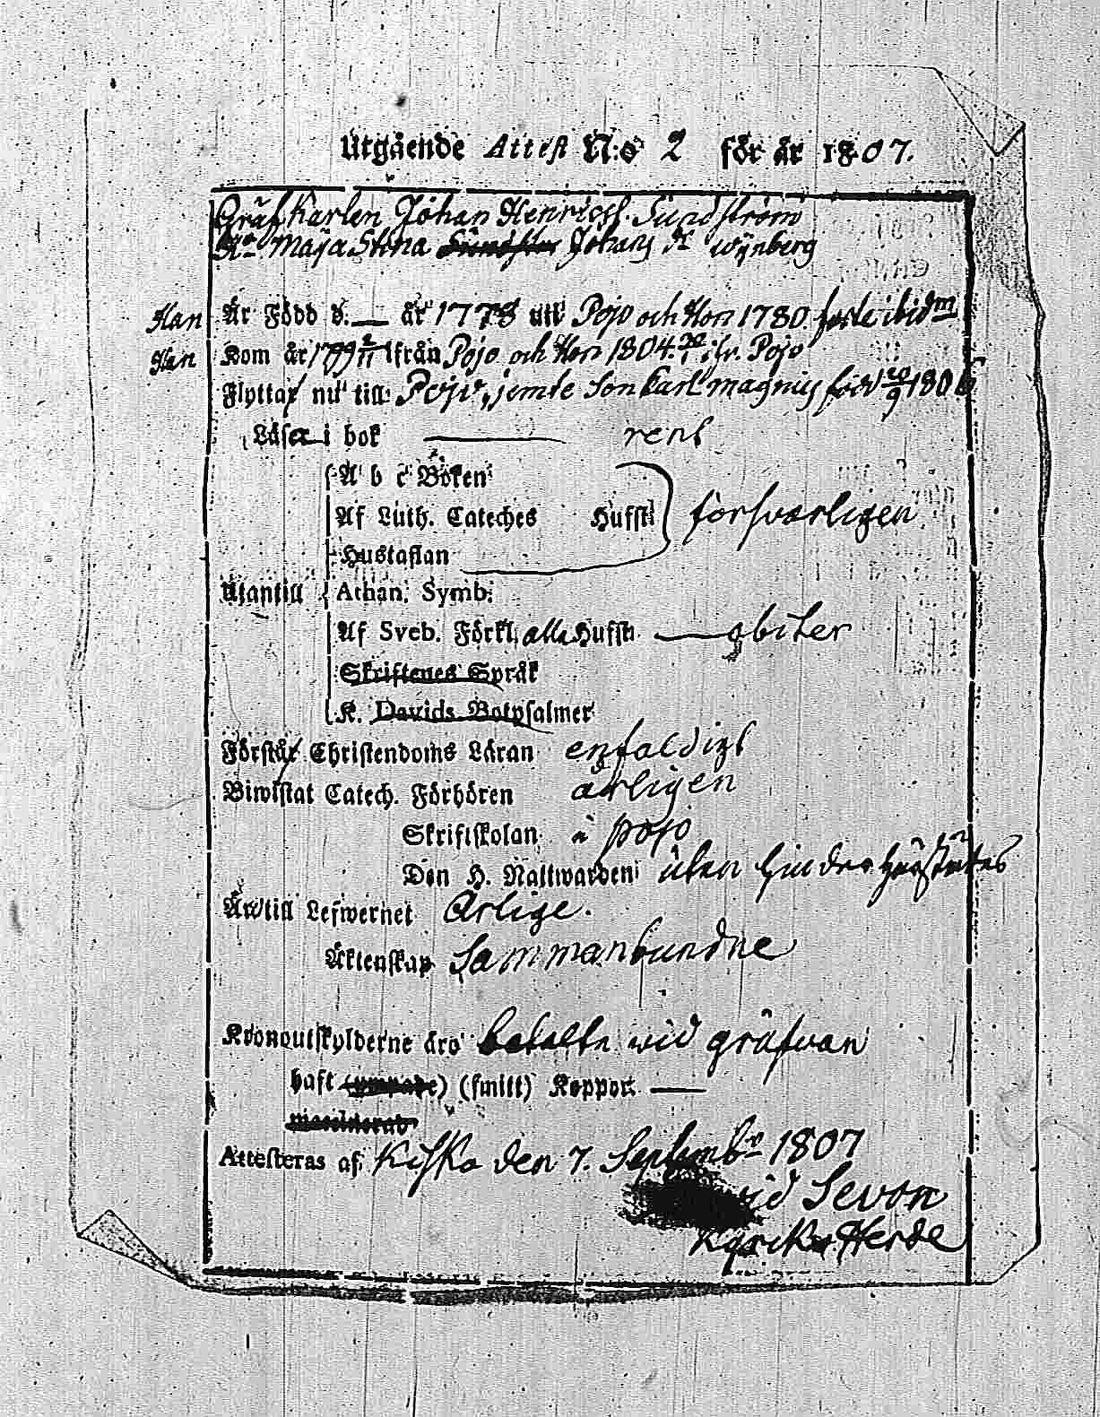 Utgående Attest N:o 2 för år 1807.
Grufkarlen Johan Henricss. Sundström
Maja Stina Johans Wynberg
Han Är Född d. — år 1778 uti Pojo och Hon 1780
Kom år ifrån Pojo och Hon 1804. Pojo
Flyttar nu till Pojo, jemte Son Carl Magnus född
Läsa i bok — rent
A b c Boken
Af Luth. Cateches Hufst. försvarligen
Hustaflan
Utantill Athan. Symb.
Af Sveb. Förkl. alla Hufst. — abiter
Skriftenes Språk
K. Davids Botpsalmer
Förstår Christendoms Läran enfaldigt
Biwistat Catech. Förhören årligen
Skriftskolan i Pojo
Den H. Nattwarden utan hinder
Är till Lefwernet Ärlige.
Äktenskap Sammanbundne
Kronoutskylderne äro betalte vid grufvan
haft (ympade) (smitt) Koppor —
Attesteras af Kisko den 7. Septembr 1807
Sevon
Kyrko Herde